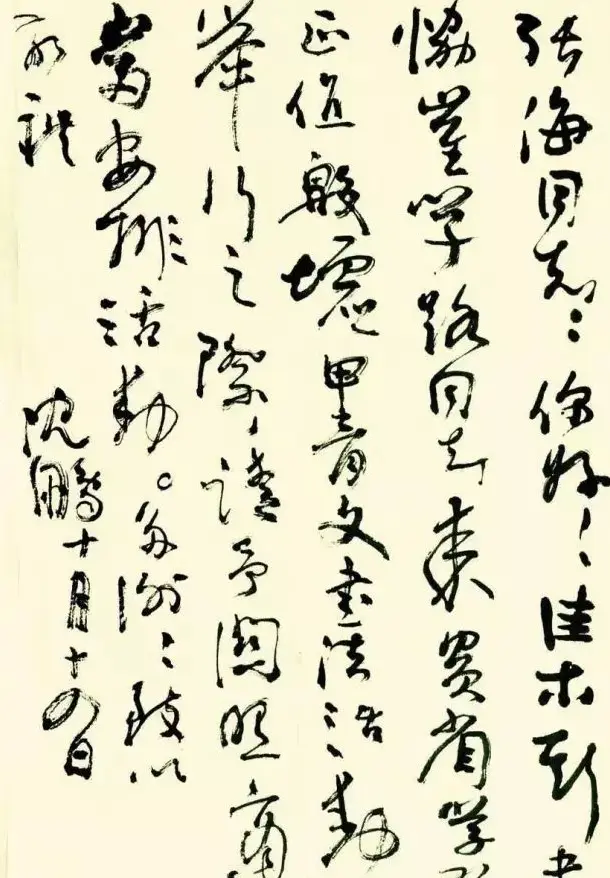 张海同志：你好！佳木斯书
协崔学路同志来贵省学习
正值殷墟甲骨文书法活动
举行之际，请予关照，适
当安排活动。多谢！致以
敬礼
沈鹏十月十四日